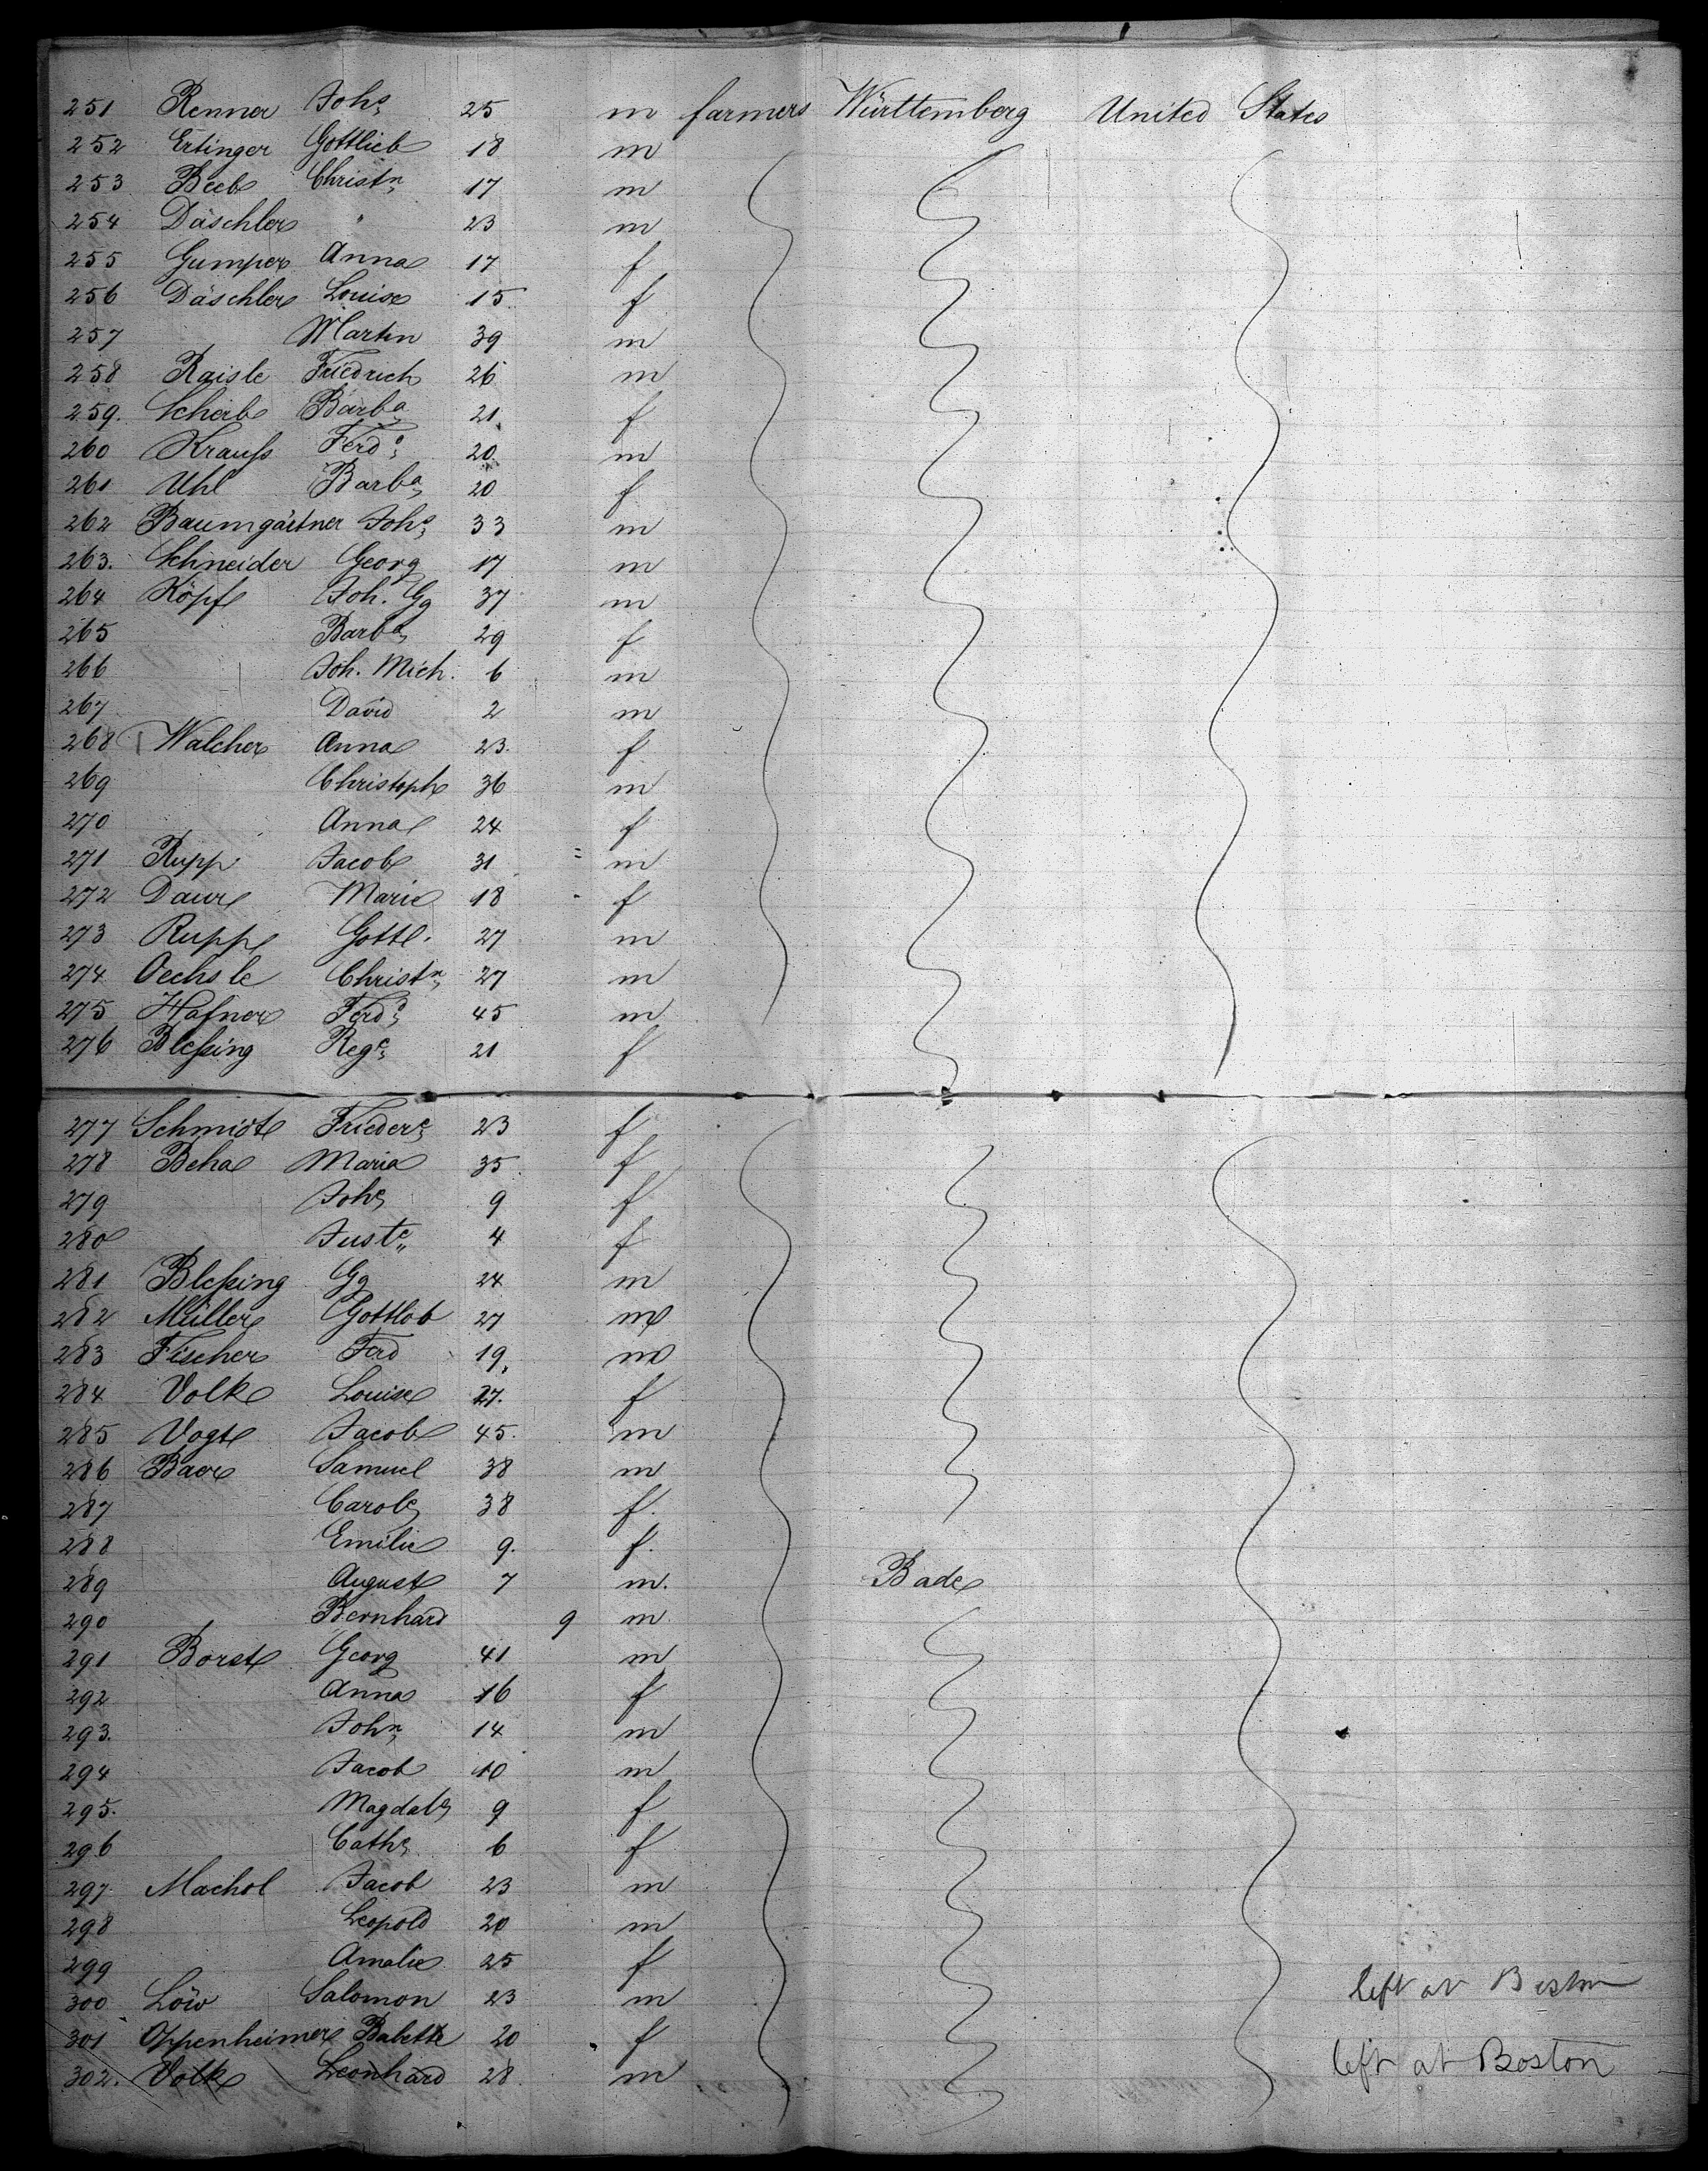 251 Renner Joh.s 25 m farmers Württemberg United States
252 Ertinger Gottlieb 18 m
253 Beeb Christn 17 m
254 Däschler " 23 m
255 Gumper Anna 17 f
256 Däschler Louise 15 f
257 Martin 39 m
258 Raisle Friedrich 26 m
259. Scherb Barba 21 f
260 Krauß Ferd 20 m
261 Uhl Barba 20 f
262 Baumgärtner Johs 33 m
263. Schneider Georg 17 m
264 Köpf Joh. Gg 37 m
265 Barba 29 f
266 Joh. Mich. 6 m
267 David 2 m
268 Walcher Anna 23. f
269 Christoph 36 m
270 Anna 24 f
271 Rupp Jacob 31 m
272 Daur Marie 18 f
273 Rupp Gottl. 27 m
274 Oechsle Christn 27 m
275 Hafner Ferd 45 m
276 Bleßing Rege 21 f
277 Schmidt Friedere 23 f
278 Beha Maria 35 f
279 Johe 9 f
280 Juste 4 f
281 Bleßing Gg 24 m
282 Müller Gottlob 27 m
283 Fischer Ferd 19 m
284 Volk Louise 27. f
285 Vogt Jacob 45. m
286 Baer Samuel 38 m
287 Carole 38 f.
288 Emilie 9. f.
289 August 7 m. Bade
290 Bernhard 9 m
291 Borst Georg 41 m
292 Anna 16 f
293. John 14 m
294 Jacob 10 m
295. Magdale 9 f
296 Cathe 6 f
297 Machol Jacob 23 m
298 Leopold 20 m
299 Amalie 25 f
300 Löw Salomon 23 m left at Boston
301 Oppenheimer Babette 20 f
302. Volk Leonhard 28 m left at Boston